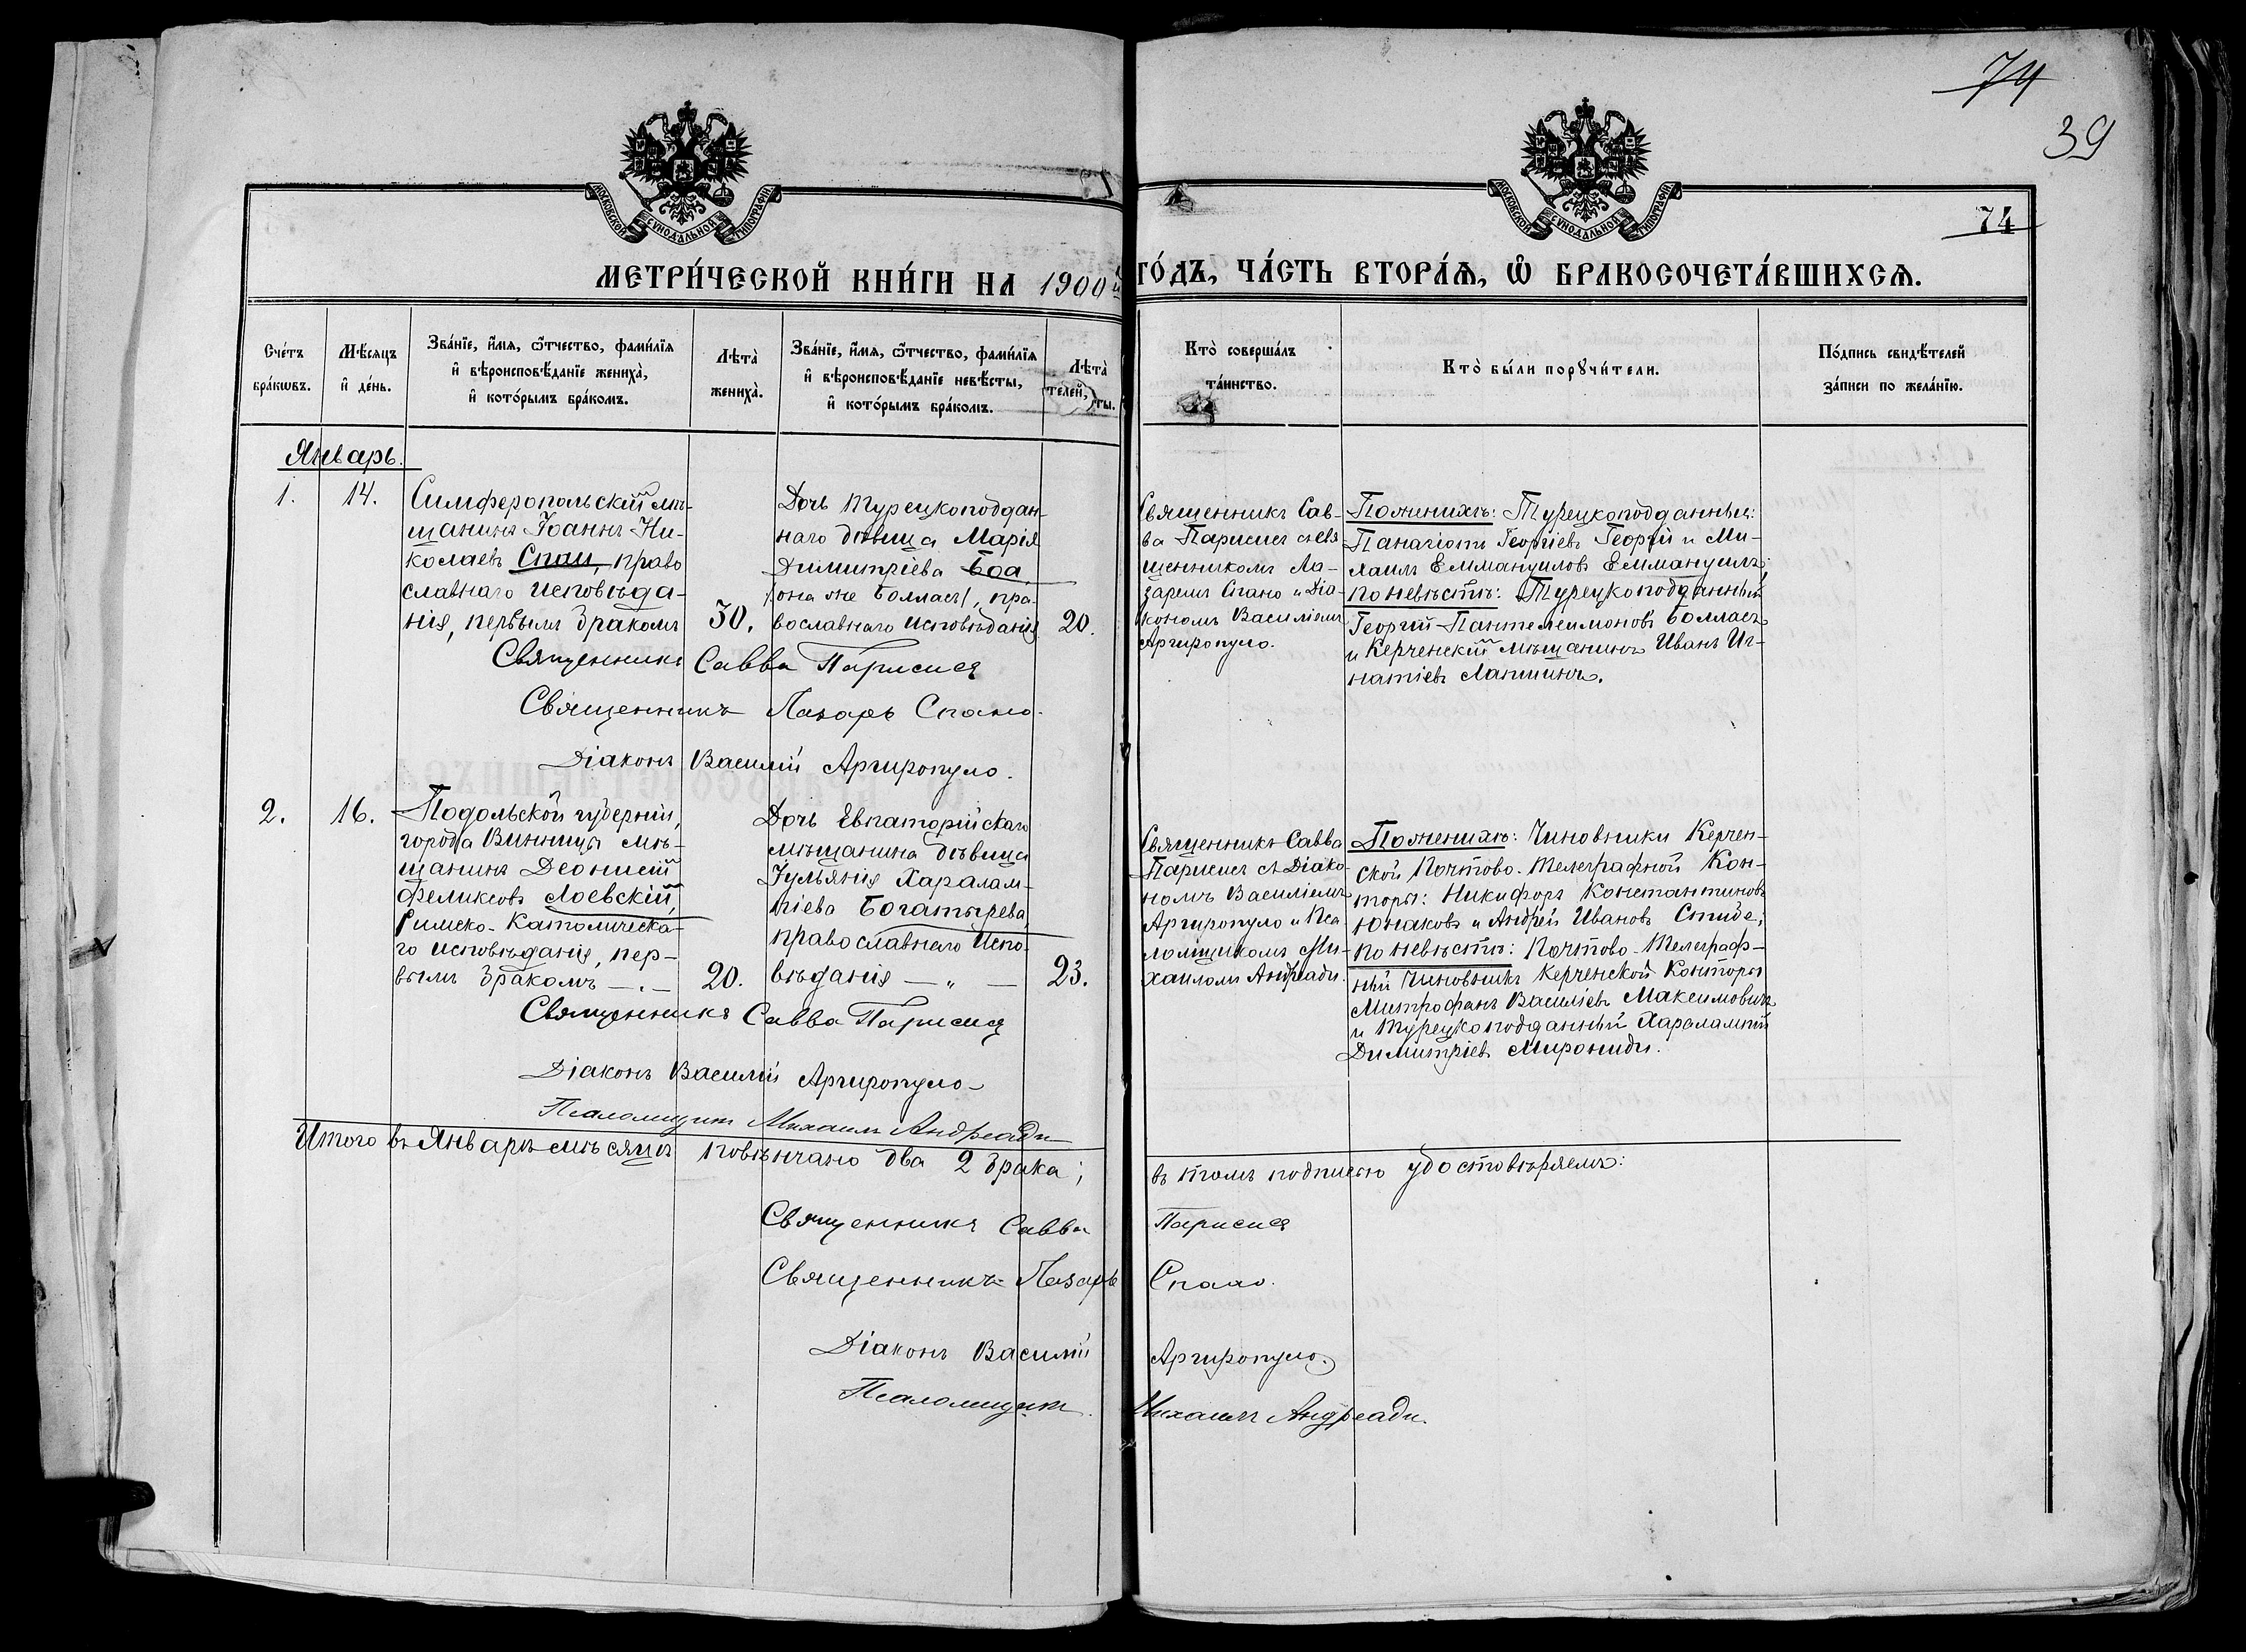 74
39
МОСКОВСКОЙ СѴНОДАЛЬНОЙ ТИПОГРАФІИ
МОСКОВСКОЙ СѴНОДАЛЬНОЙ ТИПОГРАФІИ
74
МЕТРИ́ЧЕСКОЙ КНИ́ГИ НА 1900й
ГО́ДЪ, ЧА́СТЬ ВТОРА́Ѧ, Ѡ҆ БРАКОСОЧЕТА́ВШИХСѦ.
Сче́тъ
бра́кѡвъ.
Мѣ́сяцъ
и҆ де́нь.
Зва́нїе, и҆́мѧ, ѻ҆́тчество, фами́лїѧ
и҆ вѣроисповѣ́данїе жениха̀,
и҆ кото́рымъ бра́комъ.
Лѣта̀
жениха̀.
Зва́нїе, и҆́мѧ, ѻ҆́тчество, фами́лїѧ
и҆ вѣроисповѣ́данїе невѣ́сты,
и҆ кото́рымъ бра́комъ.
Лѣта̀
телей,
ты.
Кто̀ соверша́лъ
та́инство.
Кто̀ бы́ли порꙋчи́тели.
По́дпись свидѣ́телей
за́писи по жела́нїю.
Январь.
1.
14.
Симферопольскій мѣ-
щанинъ Іоаннъ Ни-
колаевъ Спаи, право
славнаго исповѣда-
нія, первымъ бракомъ
30.
Дочь Турецкоподдан-
наго дѣвица Марія
Димитріева Боа
/она же Боллась/, пра-
вославнаго исповѣданія
20.
Священникъ Сав-
ва Парисисъ съ свя
щенникомъ Ла-
заремъ Спано и Діа-
кономъ Василіемъ
Аргиропуло.
По женихѣ: Турецкоподданный:
Панагіотъ Георгіевъ Георгій и Ми-
хаилъ Еммануиловъ Еммануилъ;
по невѣстѣ: Турецкоподданный
Георгій Пантелеимоновъ Боллась
и Керченскій мѣщанинъ Иванъ Иг-
натіевъ Лапшинъ.
Священникъ Савва Парисися
Священникъ Лазарь Спано.
Діаконъ Василій Аргиропуло.
2.
16.
Подольской губерніи,
города Винницы мѣ-
щанинъ Деонисій
Феликсовъ Лоевскій,
Римско-Католическа-
го исповѣданія, пер-
вымъ бракомъ — . —
20.
Дочь Евпаторійскаго
мѣщанина дѣвица
Іульянія Харалам-
піева Богатырева,
православнаго испо-
вѣданія — „ —
23.
Священникъ Савва
Парисисъ съ Діако-
номъ Василіемъ
Аргиропуло и Пса
ломщикомъ Ми-
хаиломъ Андреади.
По женихѣ: Чиновники Керчен-
ской Почтово-Телеграфной Кон-
торы: Никифоръ Константиновъ
Юнаковъ и Андрей Ивановъ Спиде;
по невѣстѣ: Почтово-Телеграф-
ный Чиновникъ Керченской Конторы
Митрофанъ Василіевъ Максимовичъ
и Турецкоподданный Харалампій
Димитріевъ Мирониди.
Священникъ Савва Парисися
Діаконъ Василій Аргиропуло
Псаломщикъ Михаилъ Андреади
Итого въ Январѣ мѣсяцѣ повѣнчано два 2 брака;
въ томъ подписью удостовѣряемъ:
Священникъ Савва Парисися
Священникъ Лазарь Спано.
Діаконъ Василій Аргиропуло.
Псаломщикъ Михаилъ Андреади.